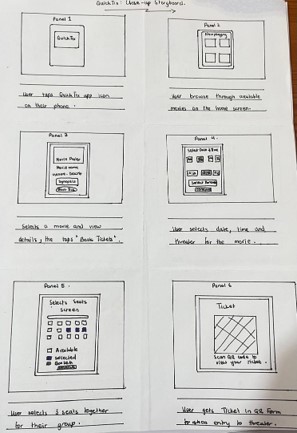 QuickTix: Close-up Storyboard.
Panel 1
QuickTix
User taps QuickTix app icon
on their phone.
Panel 2
User browse through available
movies on the home screen.
Panel 3
Movie Poster
Movie name
Synopsis
Book Tix
Selects a movie and view
details, the taps "Book Tickets".
Panel 4.
Select Date & Time
User selects date, time and
theater for the movie.
Panel 5.
Selects Seats
Screen
Available
Selected
User selects 3 seats together
for their group.
Panel 6
Ticket
Scan QR code to
view your ticket.
User gets Ticket in QR Form
entry to theater.